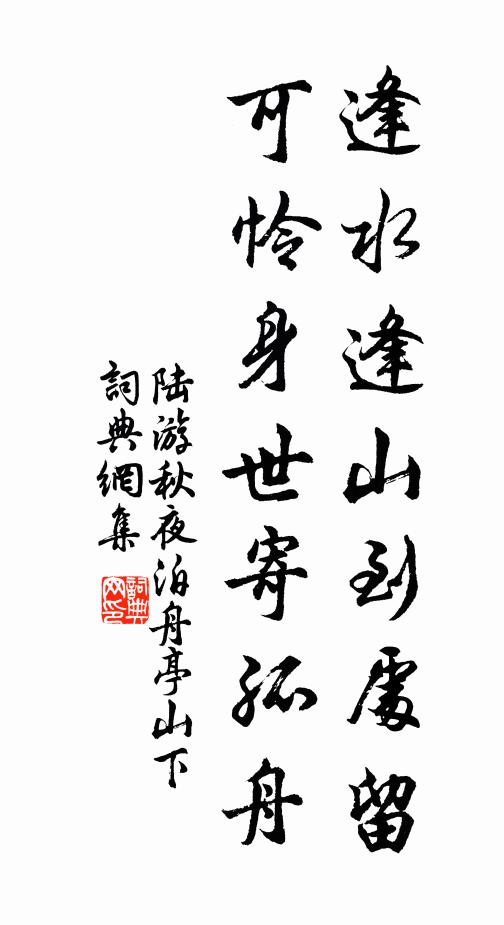 逢水逢山到處留
可怜身世寄孤舟
陆游秋夜泊舟亭山下
詞典網集
詞典
网印